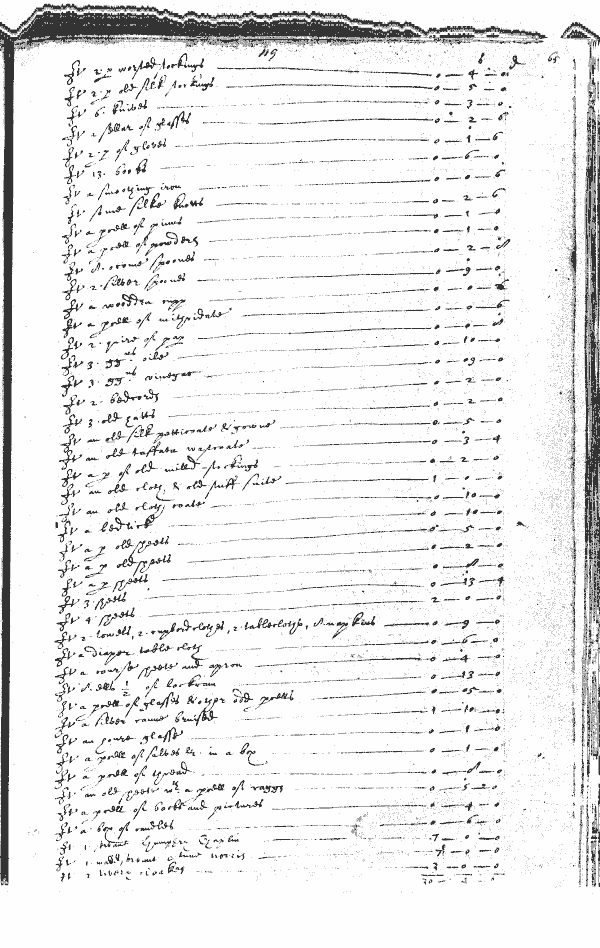 119 s d 65
It 2 p worsted stockings 0 — 4 — 0
It 2 p old silk stockings 0 — 5 — 0
It 6 knives 0 — 3 — 0
It a sellar of glasses 0 — 2 — 6
It 2 p of gloves 0 — 1 — 6
It 13 books 0 — 6 — 0
It a smoothing iron 0 — 0 — 6
It some silke knotts 0 — 2 — 6
It a pcell of pinns 0 — 1 — 0
It a pcell of powders 0 — 1 — 0
It 8 occomé spoones 0 — 2 — 8
It 2 silver spoones 0 — 9 — 0
It a wooden cupp 0 — 0 — 6
It a pcell of mithridate 0 — 0 — 6
It 2 quire of pap 0 — 0 — 8
It 3 gg oile 0 — 10 — 0
It 3 gg vinegar 0 — 09 — 0
It 2 bedcords 0 — 2 — 0
It 3 old hatts 0 — 2 — 0
It an old silk petticoate & gowne 0 — 5 — 0
It an old taffata wascoate 0 — 3 — 4
It a p of old milld stockings 0 — 2 — 0
It an old cloth & old stuff suite 1 — 0 — 0
It an old cloth coate 0 — 10 — 0
It a bedtick 0 — 10 — 0
It a p old sheets 0 — 5 — 0
It a p old sheets 0 — 2 — 0
It a p sheets 0 — 8 — 0
It 3 sheets 0 — 13 — 4
It 4 sheets 2 — 0 — 0
It 2 towells, 2 cupbordclothes, 2 tablecloths, 8 napkins 0 — 9 — 0
It a diaper table cloth 0 — 6 — 0
It a course sheete and apron 0 — 4 — 0
It 8 ells 1/2 of lockram 0 — 13 — 0
It a pcell of glasses & other odd pcells 0 — 05 — 0
It a silver canne bruised 1 — 10 — 0
It an houre glasse 0 — 1 — 0
It a pcell of salves &c in a box 0 — 1 — 0
It a pcell of thread 0 — 8 — 0
It an old sheet wth a pcell of raggs 0 — 5 — 0
It a pcell of bookes and pictures 0 — 4 — 0
It a box of candles 0 — 6 — 0
It 1 Humphry Chaplin 7 — 0 — 0
It 1 Anne Norris 7 — 0 — 0
It 2 livery cloakes 3 — 0 — 0